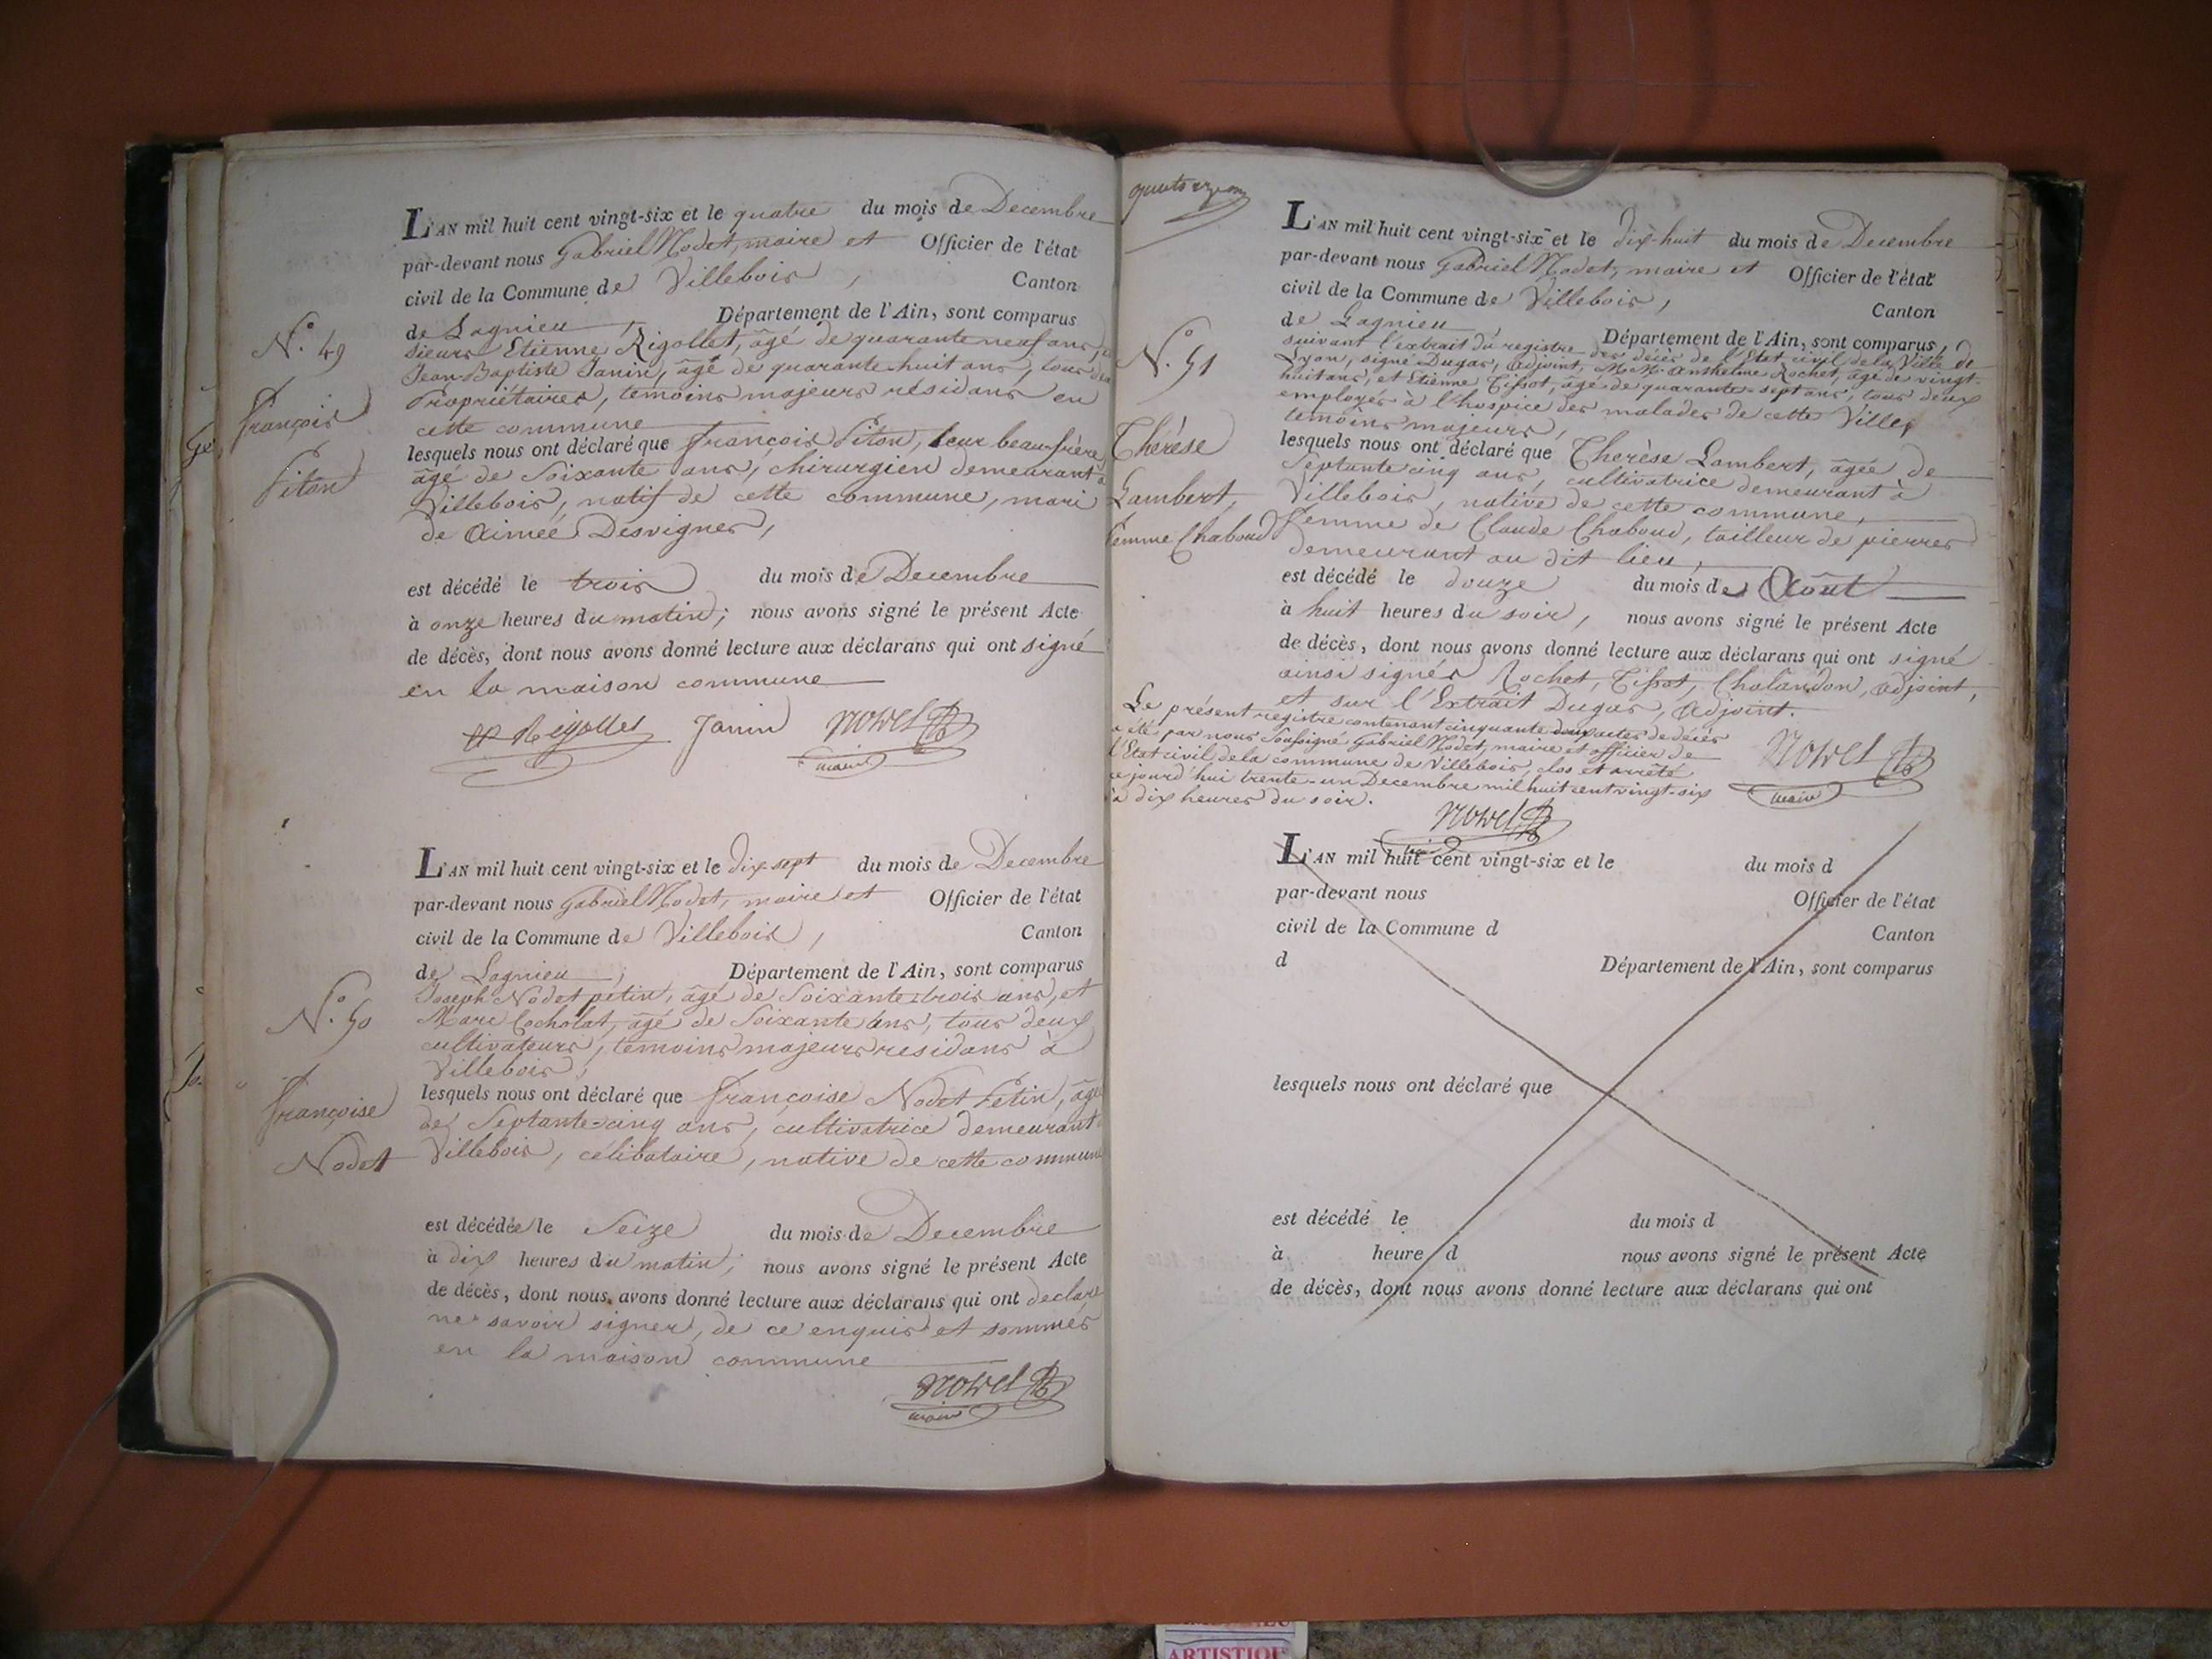 L'AN mil huit cent vingt-six et le quatre du mois de Decembre
par-devant nous Gabriel Nodet, maire et Officier de l'état
civil de la Commune de Villebois, Canton
de Lagnieu, Département de l'Ain, sont comparus
N.° 49
François
Piton
sieurs Etienne Rigollet, âgé de quarante neuf ans, et
Jean-Baptiste Janin, âgé de quarante-huit ans, tous deux
Propriétaires, temoins majeurs résidans en
cette commune
lesquels nous ont déclaré que François Piton, leur beau-frère
âgé de soixante ans, chirurgien demeurant à
Villebois, natif de cette commune, mari
de Aimée Desvignes,
est décédé le trois du mois de Decembre
à onze heures du matin; nous avons signé le présent Acte
de décès, dont nous avons donné lecture aux déclarans qui ont signé
en la maison commune
Rigollet Janin Nodet
maire
L'AN mil huit cent vingt-six et le dix-sept du mois de Decembre
par-devant nous Gabriel Nodet, maire et Officier de l'état
civil de la Commune de Villebois, Canton
de Lagnieu, Département de l'Ain, sont comparus
N.° 50
Françoise
Nodet
Joseph Nodet petin, âgé de soixante-trois ans, et
Marc Cocholat, âgé de soixante ans, tous deux
cultivateurs, temoins majeurs residans à
Villebois,
lesquels nous ont déclaré que Françoise Nodet Petin, âgée
de septante-cinq ans, cultivatrice demeurant
Villebois, célibataire, native de cette commune
est décédée le seize du mois de Decembre
à dix heures du matin; nous avons signé le présent Acte
de décès, dont nous avons donné lecture aux déclarans qui ont declaré
ne savoir signer, de ce enquis et sommés
en la maison commune
Nodet
maire
L'AN mil huit cent vingt-six et le dix-huit du mois de Decembre
par-devant nous Gabriel Nodet, maire et Officier de l'état
civil de la Commune de Villebois, Canton
de Lagnieu, Département de l'Ain, sont comparus,
N.° 51
Thérèse
Lambert,
femme Chaboud
suivant l'extrait du registre des décès de l'Etat civil de la Ville de
Lyon, signé Dugas, adjoint, M.M. Anthelme Rochet, âgé de vingt-
huit ans, et Etienne Tissot, âgé de quarante-sept ans, tous deux
employés à l'hospice des malades de cette Ville,
temoins majeurs,
lesquels nous ont déclaré que Therèse Lambert, âgée de
septante cinq ans, cultivatrice demeurant à
Villebois, native de cette commune,
femme de Claude Chaboud, tailleur de pierres
demeurant au dit lieu,
est décédé le douze du mois de Août
à huit heures du soir, nous avons signé le présent Acte
de décès, dont nous avons donné lecture aux déclarans qui ont signé
ainsi signés Rochet, Tissot, Chalandon, adjoint,
et sur l'Extrait Dugas, Adjoint.
Le présent registre contenant cinquante actes de décès
a été par nous soussigné Gabriel Nodet, maire et officier de
l'Etat civil de la commune de Villebois, clos et arrêté
ce jourd'hui trente-un Decembre mil huit cent vingt-six
à dix heures du soir.
Nodet
maire
Nodet
L'AN mil huit cent vingt-six et le du mois d
par-devant nous Officier de l'état
civil de la Commune d Canton
d Département de l'Ain, sont comparus
lesquels nous ont déclaré que
est décédé le du mois d
à heure d nous avons signé le présent Acte
de décès, dont nous avons donné lecture aux déclarans qui ont